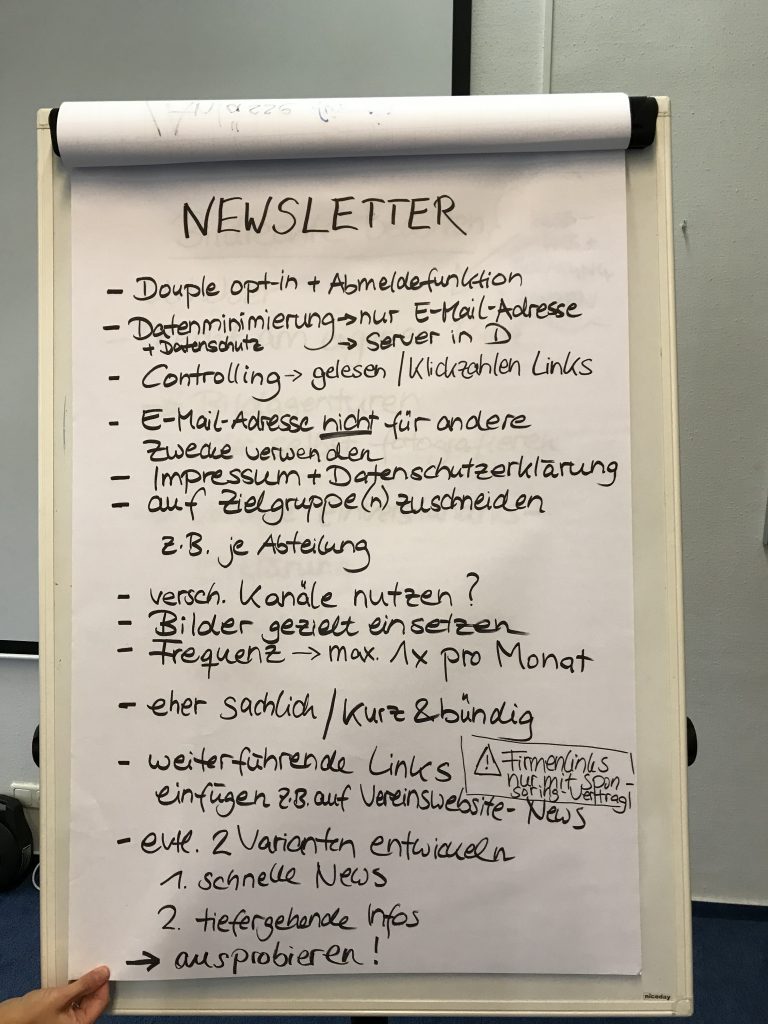 NEWSLETTER
- Douple opt-in + Abmeldefunktion
- Datenminimierung → nur E-Mail-Adresse
+ Datenschutz → Server in D
- Controlling → gelesen / Klickzahlen Links
- E-Mail-Adresse nicht für andere
Zwecke verwenden
- Impressum + Datenschutzerklärung
- auf Zielgruppe(n) zuschneiden
z.B. je Abteilung
- versch. Kanäle nutzen?
- Bilder gezielt einsetzen
- Frequenz → max. 1x pro Monat
- eher sachlich / kurz & bündig
- weiterführende Links
einfügen z.B. auf Vereinswebsite-News
⚠ Firmenlinks
nur mit Spon-
soring-Vertrag!
- evtl. 2 Varianten entwickeln
1. schnelle News
2. tiefergehende Infos
→ ausprobieren!
nicoday